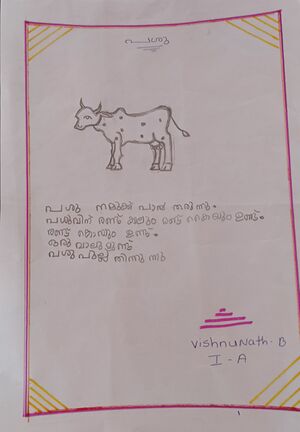 പശു
പശു നമുക്ക് പാൽ തരുന്നു.
പശുവിന് രണ്ട് കണ്ണും രണ്ട് കൈയും ഉണ്ട്.
രണ്ട് കൊമ്പും ഉണ്ട്.
ഒരു വാലുമുണ്ട്
പശു പുല്ല് തിന്നുന്നു
Vishnunath-B
I-A